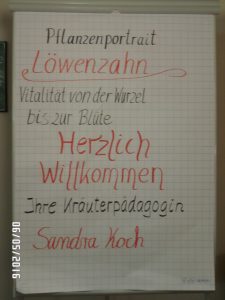 Pflanzenportrait
Löwenzahn
Vitalität von der Wurzel
bis zur Blüte
Herzlich
Willkommen
Ihre Kräuterpädagogin
Sandra Koch
06/05/2016